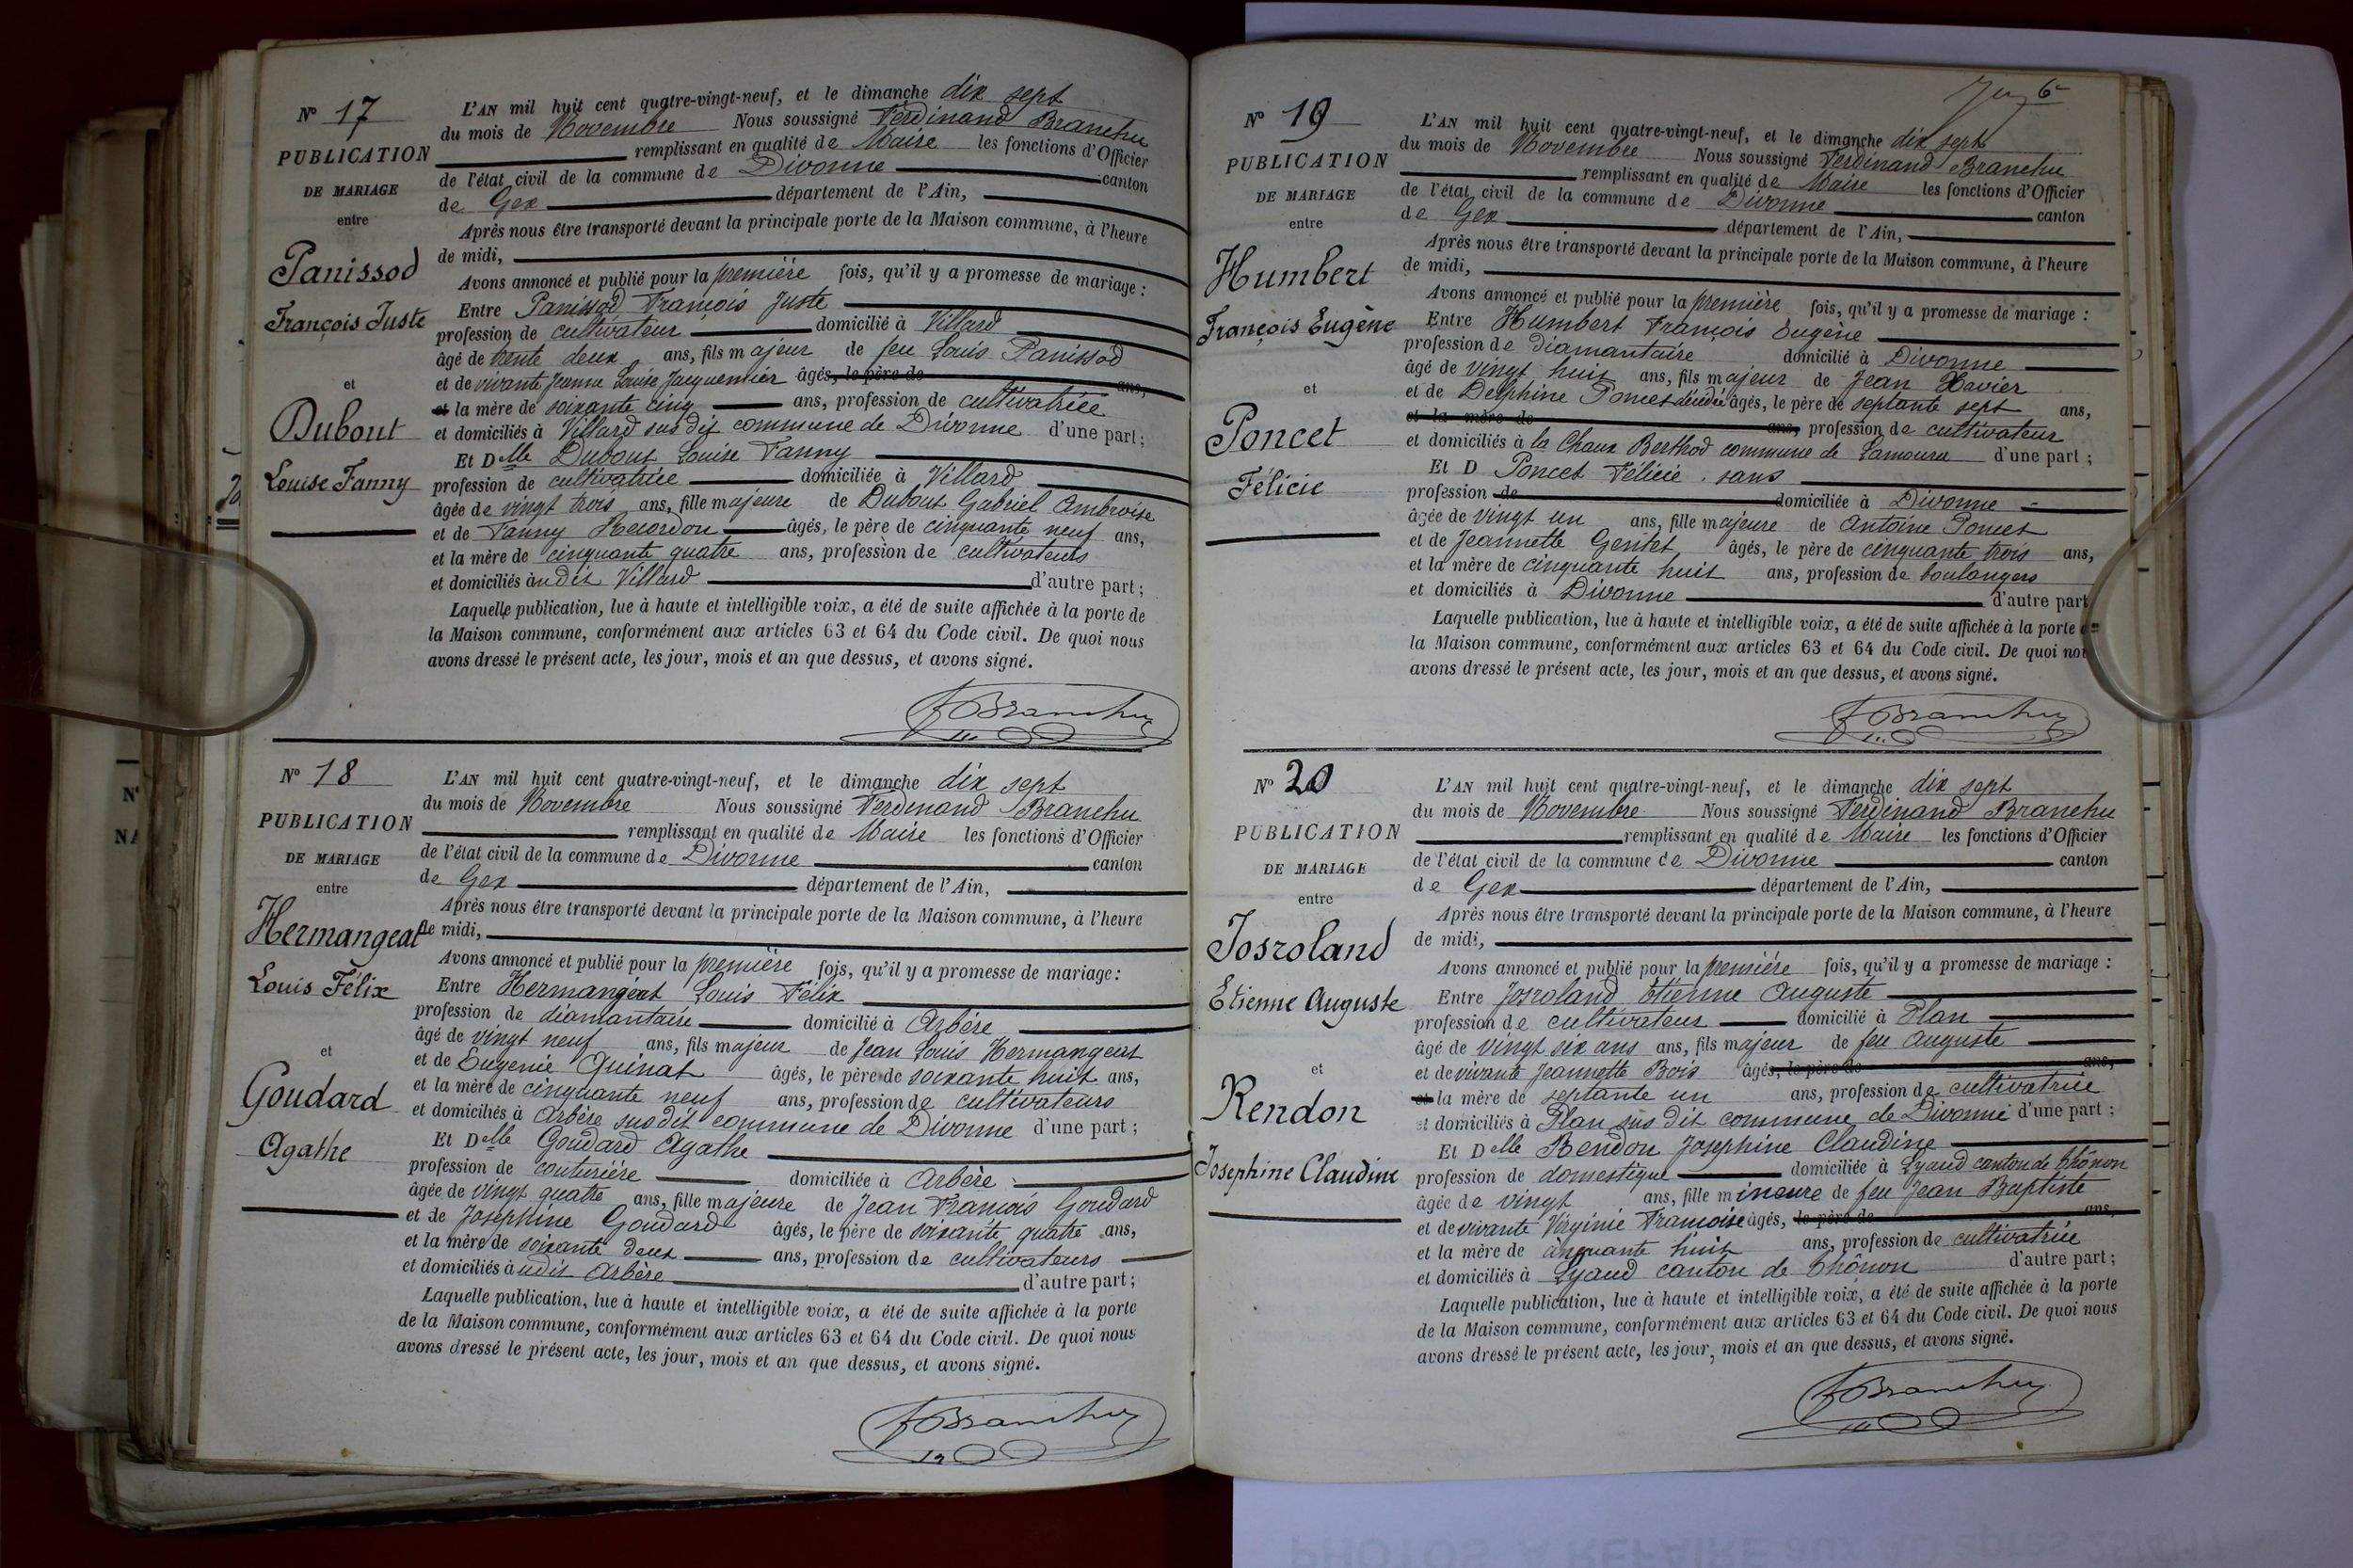 N° 17
PUBLICATION
DE MARIAGE
entre
Panissod
François Juste
et
Dubout
Louise Fanny
L'AN mil huit cent quatre-vingt-neuf, et le dimanche dix sept
du mois de Novembre Nous soussigné Ferdinand Branchu
remplissant en qualité de Maire les fonctions d'Officier
de l'état civil de la commune de Divonne canton
de Gex département de l'Ain,
Après nous être transporté devant la principale porte de la Maison commune, à l'heure
de midi,
Avons annoncé et publié pour la première fois, qu'il y a promesse de mariage :
Entre Panissod François Juste
profession de cultivateur domicilié à Villard
âgé de trente deux ans, fils majeur de feu Louis Panissod
et de vivante Jeanne Louise Jacquemier âgés, le père de ans,
et la mère de soixante cinq ans, profession de cultivatrice
et domiciliés à Villard sus dit commune de Divonne d'une part ;
Et Delle Dubout Louise Fanny
profession de cultivatrice domiciliée à Villard
âgée de vingt trois ans, fille majeure de Dubout Gabriel Ambroise
et de Fanny âgés, le père de cinquante neuf ans,
et la mère de cinquante quatre ans, profession de cultivateurs
et domiciliés audit Villard d'autre part ;
Laquelle publication, lue à haute et intelligible voix, a été de suite affichée à la porte de
la Maison commune, conformément aux articles 63 et 64 du Code civil. De quoi nous
avons dressé le présent acte, les jour, mois et an que dessus, et avons signé.
FBranchu
N° 18
PUBLICATION
DE MARIAGE
entre
Hermangeat
Louis Félix
et
Goudard
Agathe
L'AN mil huit cent quatre-vingt-neuf, et le dimanche dix sept
du mois de Novembre Nous soussigné Ferdinand Branchu
remplissant en qualité de Maire les fonctions d'Officier
de l'état civil de la commune de Divonne canton
de Gex département de l'Ain,
Après nous être transporté devant la principale porte de la Maison commune, à l'heure
de midi,
Avons annoncé et publié pour la première fois, qu'il y a promesse de mariage :
Entre Hermangeat Louis Félix
profession de diamantaire domicilié à Arbère
âgé de vingt neuf ans, fils majeur de Jean Louis Hermangeat
et de Eugenie Quinat âgés, le père de soixante huit ans,
et la mère de cinquante neuf ans, profession de cultivateurs
et domiciliés à Arbère susdit commune de Divonne d'une part ;
Et Delle Goudard Agathe
profession de couturière domiciliée à Arbère
âgée de vingt quatre ans, fille majeure de Jean François Goudard
et de Joséphine Goudard âgés, le père de soixante quatre ans,
et la mère de soixante deux ans, profession de cultivateurs
et domiciliés audit Arbère d'autre part ;
Laquelle publication, lue à haute et intelligible voix, a été de suite affichée à la porte
de la Maison commune, conformément aux articles 63 et 64 du Code civil. De quoi nous
avons dressé le présent acte, les jour, mois et an que dessus, et avons signé.
FBranchu
6
N° 19
PUBLICATION
DE MARIAGE
entre
Humbert
François Eugène
et
Poncet
Félicie
L'AN mil huit cent quatre-vingt-neuf, et le dimanche dix sept
du mois de Novembre Nous soussigné Ferdinand Branchu
remplissant en qualité de Maire les fonctions d'Officier
de l'état civil de la commune de Divonne canton
de Gex département de l'Ain,
Après nous être transporté devant la principale porte de la Maison commune, à l'heure
de midi,
Avons annoncé et publié pour la première fois, qu'il y a promesse de mariage :
Entre Humbert François Eugène
profession de diamantaire domicilié à Divonne
âgé de vingt huit ans, fils majeur de Jean Xavier
et de Delphine Poncet décédée âgés, le père de septante sept ans,
et la mère de ans, profession de cultivateur
et domiciliés à la Chaux Berthod commune de Lamoura d'une part ;
Et D Poncet Félicie sans
profession de domiciliée à Divonne
âgée de vingt un ans, fille majeure de Antoine Poncet
et de Jeannette Gentet âgés, le père de cinquante trois ans,
et la mère de cinquante huit ans, profession de boulangers
et domiciliés à Divonne d'autre part
Laquelle publication, lue à haute et intelligible voix, a été de suite affichée à la porte de
la Maison commune, conformément aux articles 63 et 64 du Code civil. De quoi nou
avons dressé le présent acte, les jour, mois et an que dessus, et avons signé.
FBranchu
N° 20
PUBLICATION
DE MARIAGE
entre
Josroland
Etienne Auguste
et
Rendon
Josephine Claudine
L'AN mil huit cent quatre-vingt-neuf, et le dimanche dix sept
du mois de Novembre Nous soussigné Ferdinand Branchu
remplissant en qualité de Maire les fonctions d'Officier
de l'état civil de la commune de Divonne canton
de Gex département de l'Ain,
Après nous être transporté devant la principale porte de la Maison commune, à l'heure
de midi,
Avons annoncé et publié pour la première fois, qu'il y a promesse de mariage :
Entre Josroland Etienne Auguste
profession de cultivateur domicilié à Plan
âgé de vingt six ans ans, fils majeur de feu Auguste
et de vivante Jeannette Bois âgés, le père de ans,
et la mère de septante un ans, profession de cultivatrice
et domiciliés à Plan sus dit commune de Divonne d'une part ;
Et Delle Rendon Josephine Claudine
profession de domestique domiciliée à Lyaud canton de Thônon
âgée de vingt ans, fille mineure de feu Jean Baptiste
et de vivante Virginie Françoise âgés, le père de ans,
et la mère de cinquante huit ans, profession de cultivatrice
et domiciliés à Lyaud canton de Thônon d'autre part ;
Laquelle publication, lue à haute et intelligible voix, a été de suite affichée à la porte
de la Maison commune, conformément aux articles 63 et 64 du Code civil. De quoi nous
avons dressé le présent acte, les jour, mois et an que dessus, et avons signé.
FBranchu